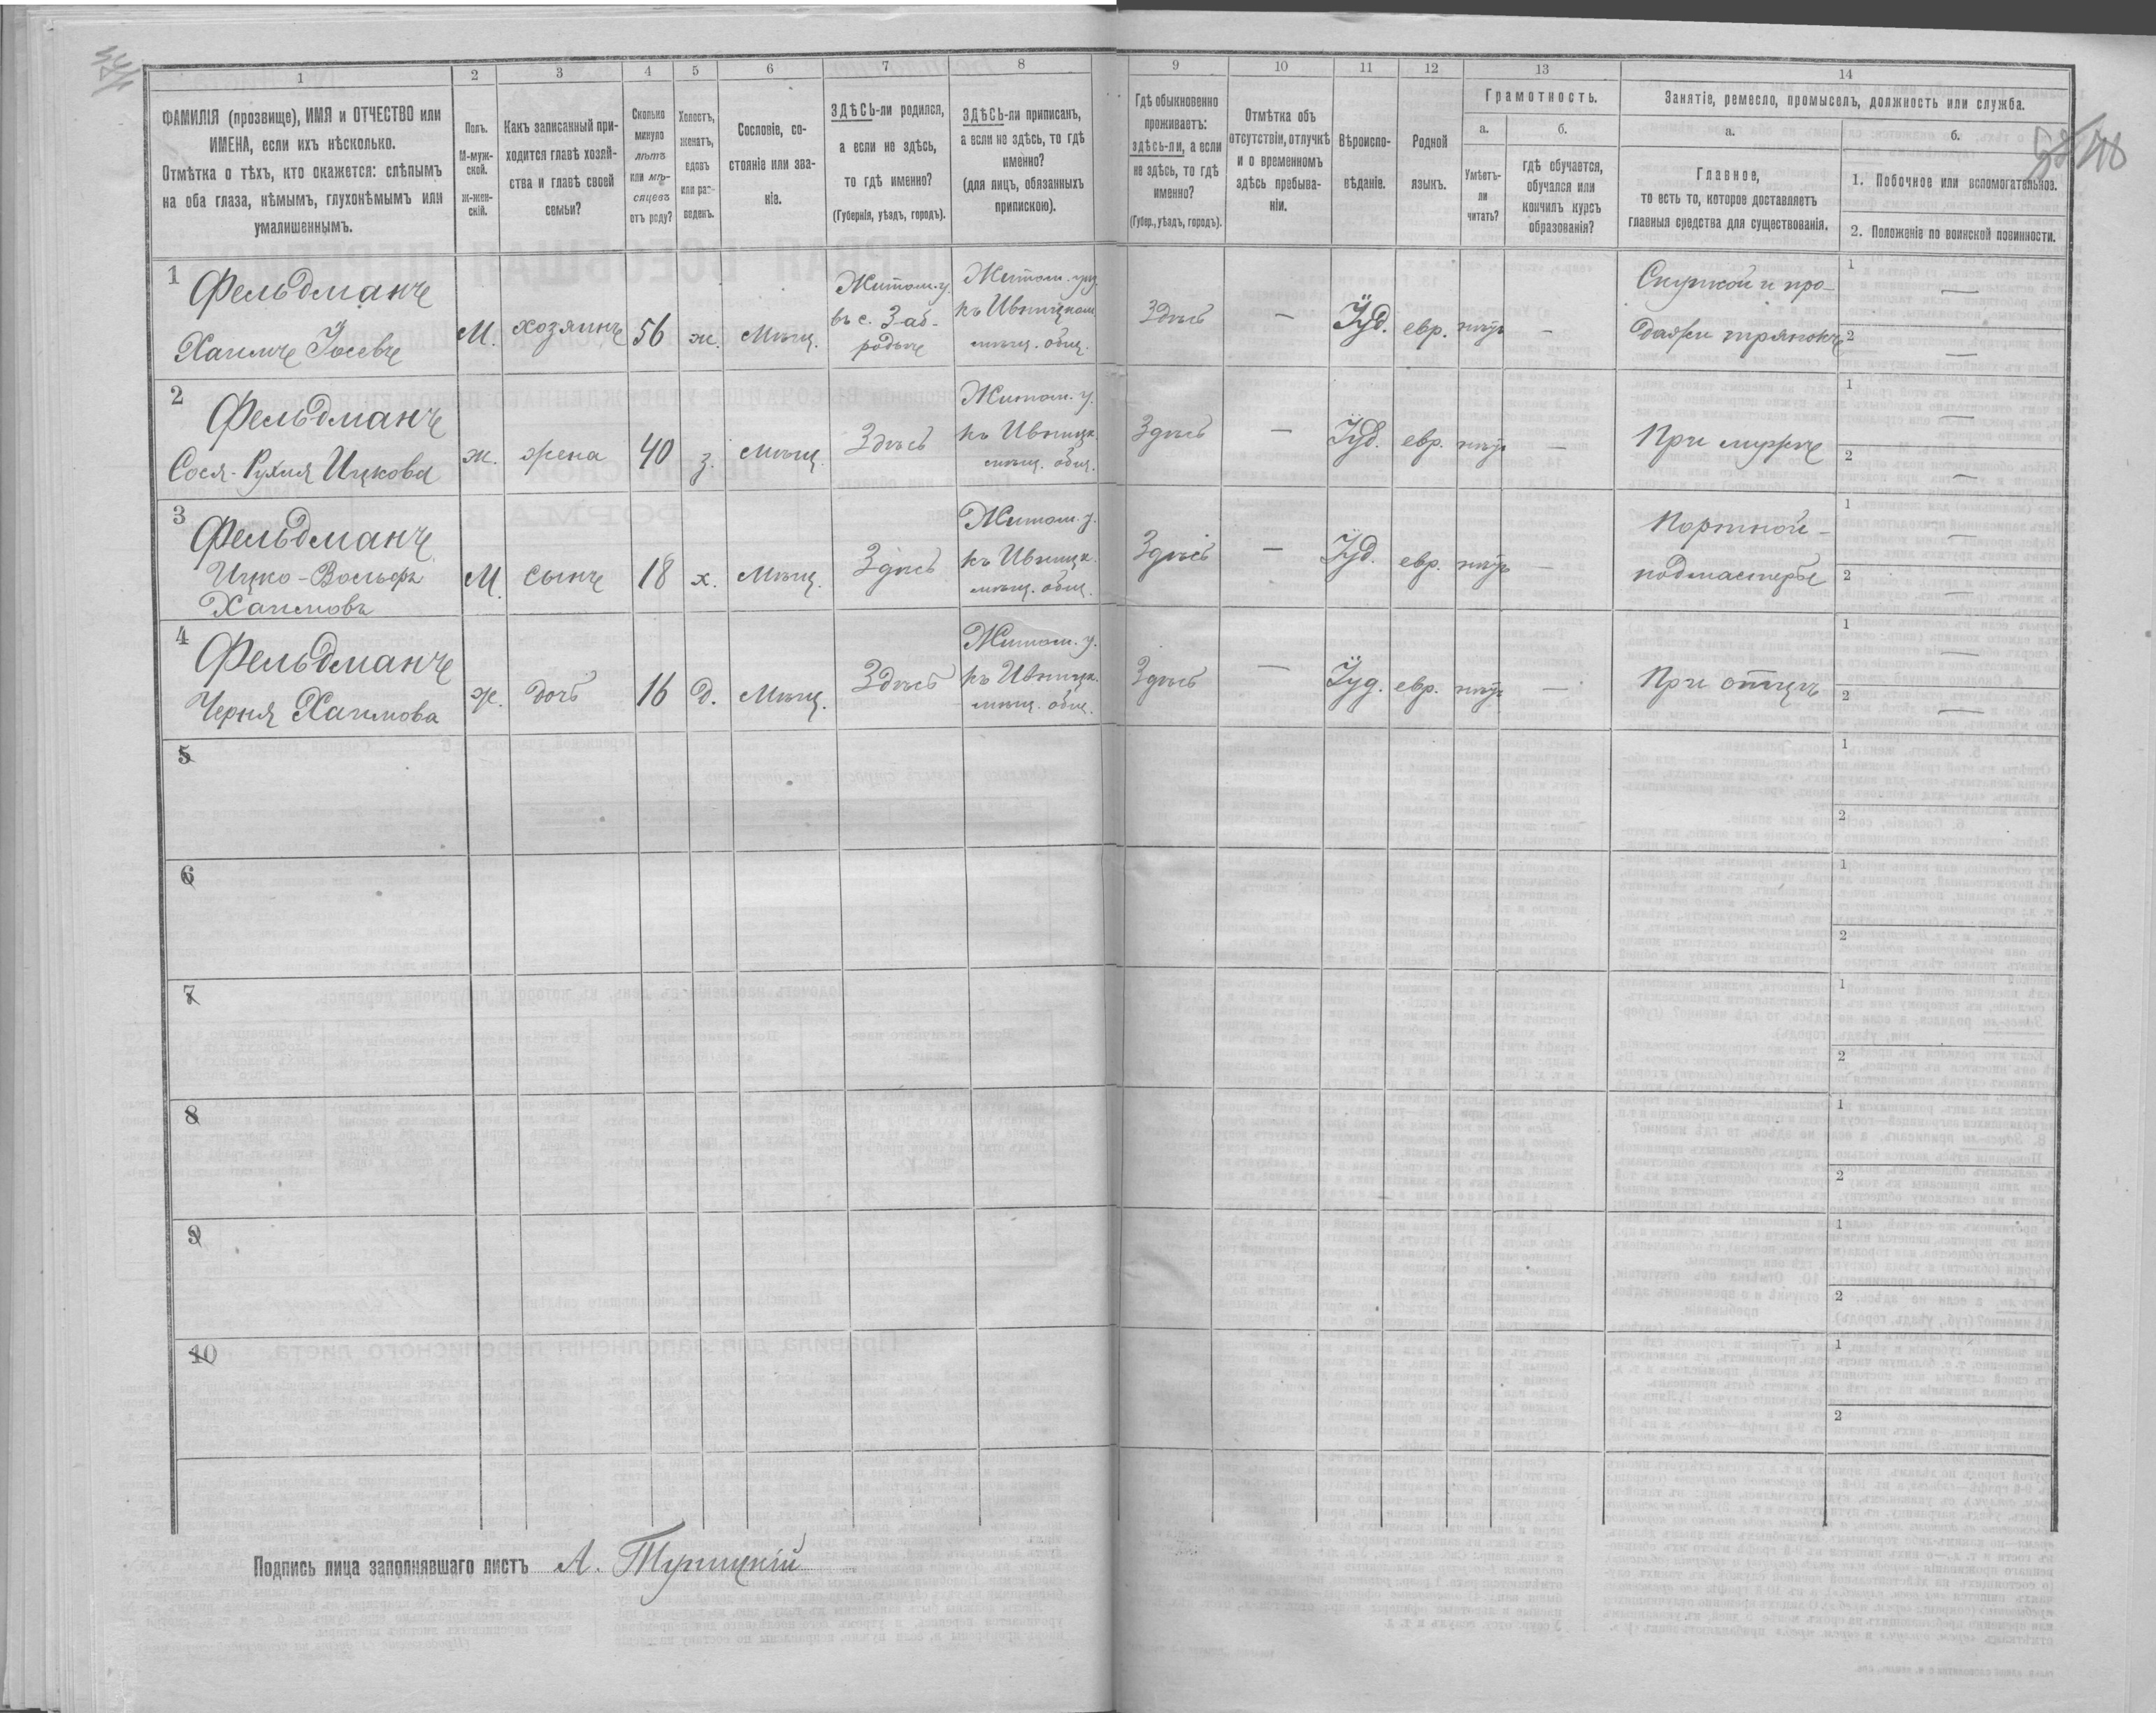 1 2 3 4 5 6 7 8 9 10 11 12 13 14
ФАМИЛІЯ (прозвище), ИМЯ и ОТЧЕСТВО или
ИМЕНА, если ихъ нѣсколько.
Отмѣтка о тѣхъ, кто окажется: слѣпымъ
на оба глаза, нѣмымъ, глухонѣмымъ или
умалишеннымъ.
Полъ.
М-муж-
ской.
ж-жен-
скій.
Какъ записанный при-
ходится главѣ хозяй-
ства и главѣ своей
семьи?
Сколько
минуло
лѣтъ
или мѣ-
сяцевъ
отъ роду?
Холостъ,
женатъ,
вдовъ
или раз-
веденъ.
Сословіе, со-
стояніе или зва-
ніе.
ЗДѢСЬ-ли родился,
а если не здѣсь,
то гдѣ именно?
(Губернія, уѣздъ, городъ).
ЗДѢСЬ-ли приписанъ,
а если не здѣсь, то гдѣ
именно?
(для лицъ, обязанныхъ
припискою).
Гдѣ обыкновенно
проживаетъ:
здѣсь-ли, а если
не здѣсь, то гдѣ
именно?
(Губер., уѣздъ, городъ).
Отмѣтка объ
отсутствіи, отлучкѣ
и о временномъ
здѣсь пребыва-
ніи.
Вѣроиспо-
вѣданіе.
Родной
языкъ.
Грамотность.
а.
Умѣетъ-
ли
читать?
б.
гдѣ обучается,
обучался или
кончилъ курсъ
образованія?
Занятіе, ремесло, промыселъ, должность или служба.
а.
Главное,
то есть то, которое доставляетъ
главныя средства для существованія.
б.
1. Побочное или вспомогательное.
2. Положеніе по воинской повинности.
1
Фельдманъ
Хаимъ Іосевъ
М.
хозяинъ
56
ж.
Мѣщ.
Житом. у.
въ с. Заб-
родье
Житом. уѣз.
къ Ивницком.
мѣщ. общ.
Здѣсь
—
Іуд.
евр.
нѣтъ
—
Скупкой и про-
дажи тряпокъ
1 —
2 —
2
Фельдманъ
Сося-Рухля Ицкова
ж.
жена
40
з.
мѣщ.
Здѣсь
Житом. у.
къ Ивницк.
мѣщ. общ.
Здѣсь
—
Іуд.
евр.
нѣтъ
—
При мужѣ
1 —
2 —
3
Фельдманъ
Ицко-Вольфъ
Хаимовъ
М.
сынъ
18
х.
Мѣщ.
Здѣсь
Житом. у.
къ Ивницк.
мѣщ. общ.
Здѣсь
—
Іуд.
евр.
нѣтъ
—
Портной-
подмастерье
1 —
2 —
4
Фельдманъ
Черня Хаимова
ж.
дочь
16
д.
Мѣщ.
Здѣсь
Житом. у.
къ Ивницк.
мѣщ. общ.
Здѣсь
—
Іуд.
евр.
нѣтъ
—
При отцѣ
1 —
2 —
5
1
2
6
1
2
7
1
2
8
1
2
9
1
2
10
1
2
Подпись лица заполнявшаго листъ А.